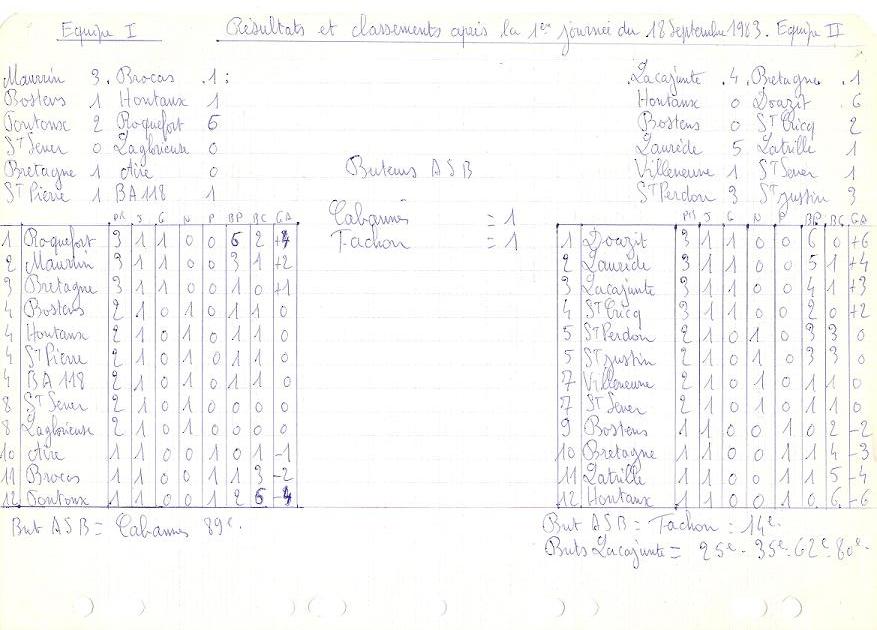 Equipe I Résultats et classements après la 1ère journée du 18 Septembre 1983. Equipe II
Maurrin 3. Brocas .1;
Bostens 1 Hontanx 1
Pontonx 2 Roquefort 6
St Sever 0 Laglorieuse 0
Bretagne 1 Aire 0
St Pierre 1 BA 118 1
Lacajunte .4. Bretagne .1
Hontanx 0 Doazit 6
Bostens 0 St Cricq 2
Laurède 5 Latrille 1
Villeneuve 1 St Sever 1
St Perdon 3 St Justin 3
Buteurs ASB
Cabannes = 1
Fachon = 1
Pts J G N P BP BC GA
1 Roquefort 3 1 1 0 0 6 2 +4
2 Maurrin 3 1 1 0 0 3 1 +2
3 Bretagne 3 1 1 0 0 1 0 +1
4 Bostens 2 1 0 1 0 1 1 0
4 Hontanx 2 1 0 1 0 1 1 0
4 St Pierre 2 1 0 1 0 1 1 0
4 BA 118 2 1 0 1 0 1 1 0
8 St Sever 2 1 0 1 0 0 0 0
8 Laglorieuse 2 1 0 1 0 0 0 0
10 Aire 1 1 0 0 1 0 1 -1
11 Brocas 1 1 0 0 1 1 3 -2
12 Pontonx 1 1 0 0 1 2 6 -4
But ASB = Cabannes 89e.
Pts J G N P BP BC GA
1 Doazit 3 1 1 0 0 6 0 +6
2 Laurède 3 1 1 0 0 5 1 +4
3 Lacajunte 3 1 1 0 0 4 1 +3
4 St Cricq 3 1 1 0 0 2 0 +2
5 St Perdon 2 1 0 1 0 3 3 0
5 St Justin 2 1 0 1 0 3 3 0
7 Villeneuve 2 1 0 1 0 1 1 0
7 St Sever 2 1 0 1 0 1 1 0
9 Bostens 1 1 0 0 1 0 2 -2
10 Bretagne 1 1 0 0 1 1 4 -3
11 Latrille 1 1 0 0 1 1 5 -4
12 Hontanx 1 1 0 0 1 0 6 -6
But ASB = Fachon : 14e.
Buts Lacajunte = 25e - 35e - 62e - 80e.